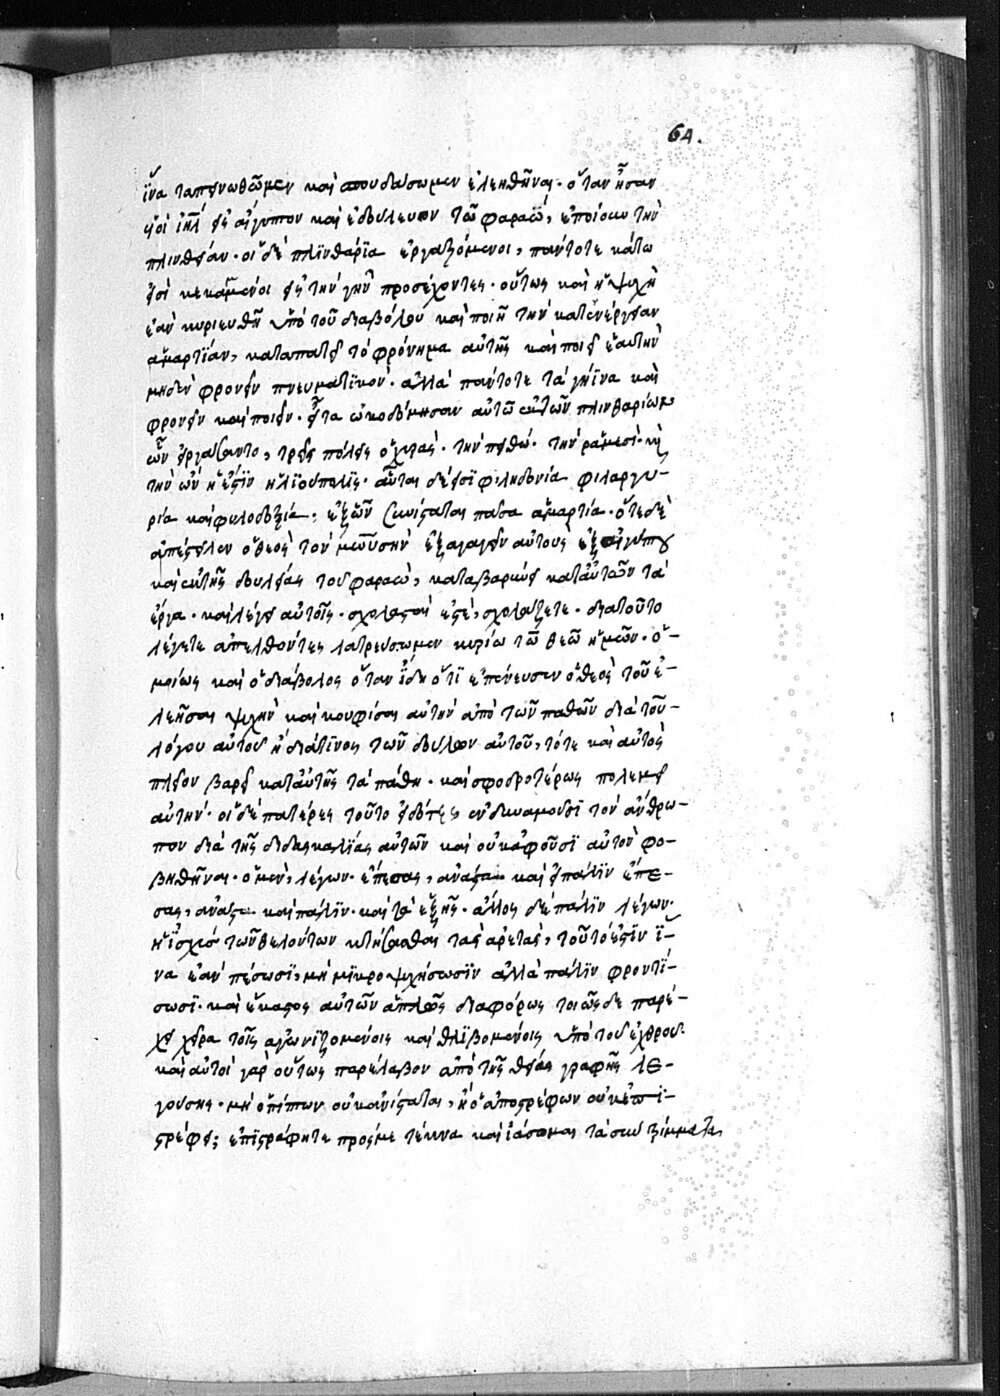 64.
ἵνα ταπεινωθῶμεν καὶ σπουδάσωμεν ἐλεηθῆναι· ὅταν ἦσαν
οἱ ἰηλ εἰς αἴγυπτον καὶ ἐδούλευον τῶ φαραῶ, ἐποίουν τὴν
πλινθείαν· οἱ δὲ πλινθάρια ἐργαζόμενοι, πάντοτε κάτω
εἰσὶ κεκαμμένοι εἰς τὴν γῆν προσέχοντες· οὕτως καὶ ἡ ψυχὴ
ἐὰν κυριευθῆ ὑπὸ τοῦ διαβόλου καὶ ποιῆ τὴν κατενέργειαν
ἁμαρτίαν, καταπατεῖ τὸ φρόνημα αὐτῆς καὶ ποιεῖ ἑαυτὴν
μηδὲν φρονεῖν πνευματικὸν· ἀλλὰ πάντοτε τὰ γήϊνα καὶ
φρονεῖν καὶ ποιεῖν· εἶτα ὠκοδόμησαν αὐτῶ ἐκ τῶν πλινθαρίων
ὧν εἰργάζοντο, τρεῖς πόλεις ὀχυράς· τὴν πειθώ· τὴν ῥαμεσὶ· καὶ
τὴν ὢν ἥ ἐστιν ἡλιούπολις· αὗται δέ εἰσι φιληδονία φιλαργυ-
ρία καὶ φιλοδοξία, ἐξ ὧν συνίσταται πᾶσα ἁμαρτία· ὅτε δὲ
ἀπέστειλεν ὁ θεὸς τὸν μωϋσὴν ἐξαγαγεῖν αὐτοὺς ἐξ αἰγύπτου
καὶ ἐκ τῆς δουλείας τοῦ φαραὼ, καταβαρύνει κατ' αὐτῶν τὰ
ἔργα· καὶ λέγει αὐτοῖς· σχολασταί ἐστὲ, σχολάζετε· διατοῦτο
λέγετε ἀπελθόντες λατρεύσωμεν κυρίω τῶ θεῶ ἡμῶν· ὁ-
μοίως καὶ ὁ διάβολος ὅταν ἴδη ὅτι ἐπένευσεν ὁ θεὸς τοῦ ἐ-
λεῆσαι ψυχὴν καὶ κουφίσαι αὐτὴν ἀπὸ τῶν παθῶν διὰ τοῦ
λόγου αὐτοῦ ἢ διά τινος τῶν δούλων αὐτοῦ, τότε καὶ αὐτὸς
πλεῖον βαρεῖ κατ' αὐτῆς τὰ πάθη· καὶ σφοδροτέρως πολεμεῖ
αὐτὴν· οἱ δὲ πατέρες τοῦτο εἰδότες, ἐνδυναμοῦσι τὸν ἄνθρω-
πον διὰ τῆς διδασκαλίας αὐτῶν καὶ οὐκ ἀφοῦσι αὐτὸν φο-
βηθῆναι· ὁ μὲν, λέγων· ἔπεσας, ἀνάστα καὶ εἰ πάλιν ἔπε-
σας, ἀνάστα καὶ πάλιν· καὶ τὰ ἑξῆς· ἄλλος δὲ πάλιν λέγων·
ἡ ἰσχὺς τῶν θελόντων κτήσασθαι τὰς ἀρετὰς, τοῦτό ἐστιν ἵ-
να ἐὰν πέσωσι, μὴ μικροψυχήσωσιν ἀλλὰ πάλιν φροντί-
σωσι· καὶ ἕκαστος αὐτῶν ἁπλῶς διαφόρως τοιῶσδε παρέ-
χει χεῖρα τοῖς ἀγωνιζομένοις καὶ θλιβομένοις ὑπὸ τοῦ ἐχθροῦ·
καὶ αὐτοὶ γὰρ οὕτως παρέλαβον ἀπὸ τῆς θείας γραφῆς λε-
γούσης· μὴ ὁ πίπτων οὐκ ἀνίσταται, ἢ ὁ ἀποστρέφων οὐκ ἐπι-
στρέφει; ἐπιστράφητε πρός με τέκνα καὶ ἰάσομαι τὰ συντρίμματα.